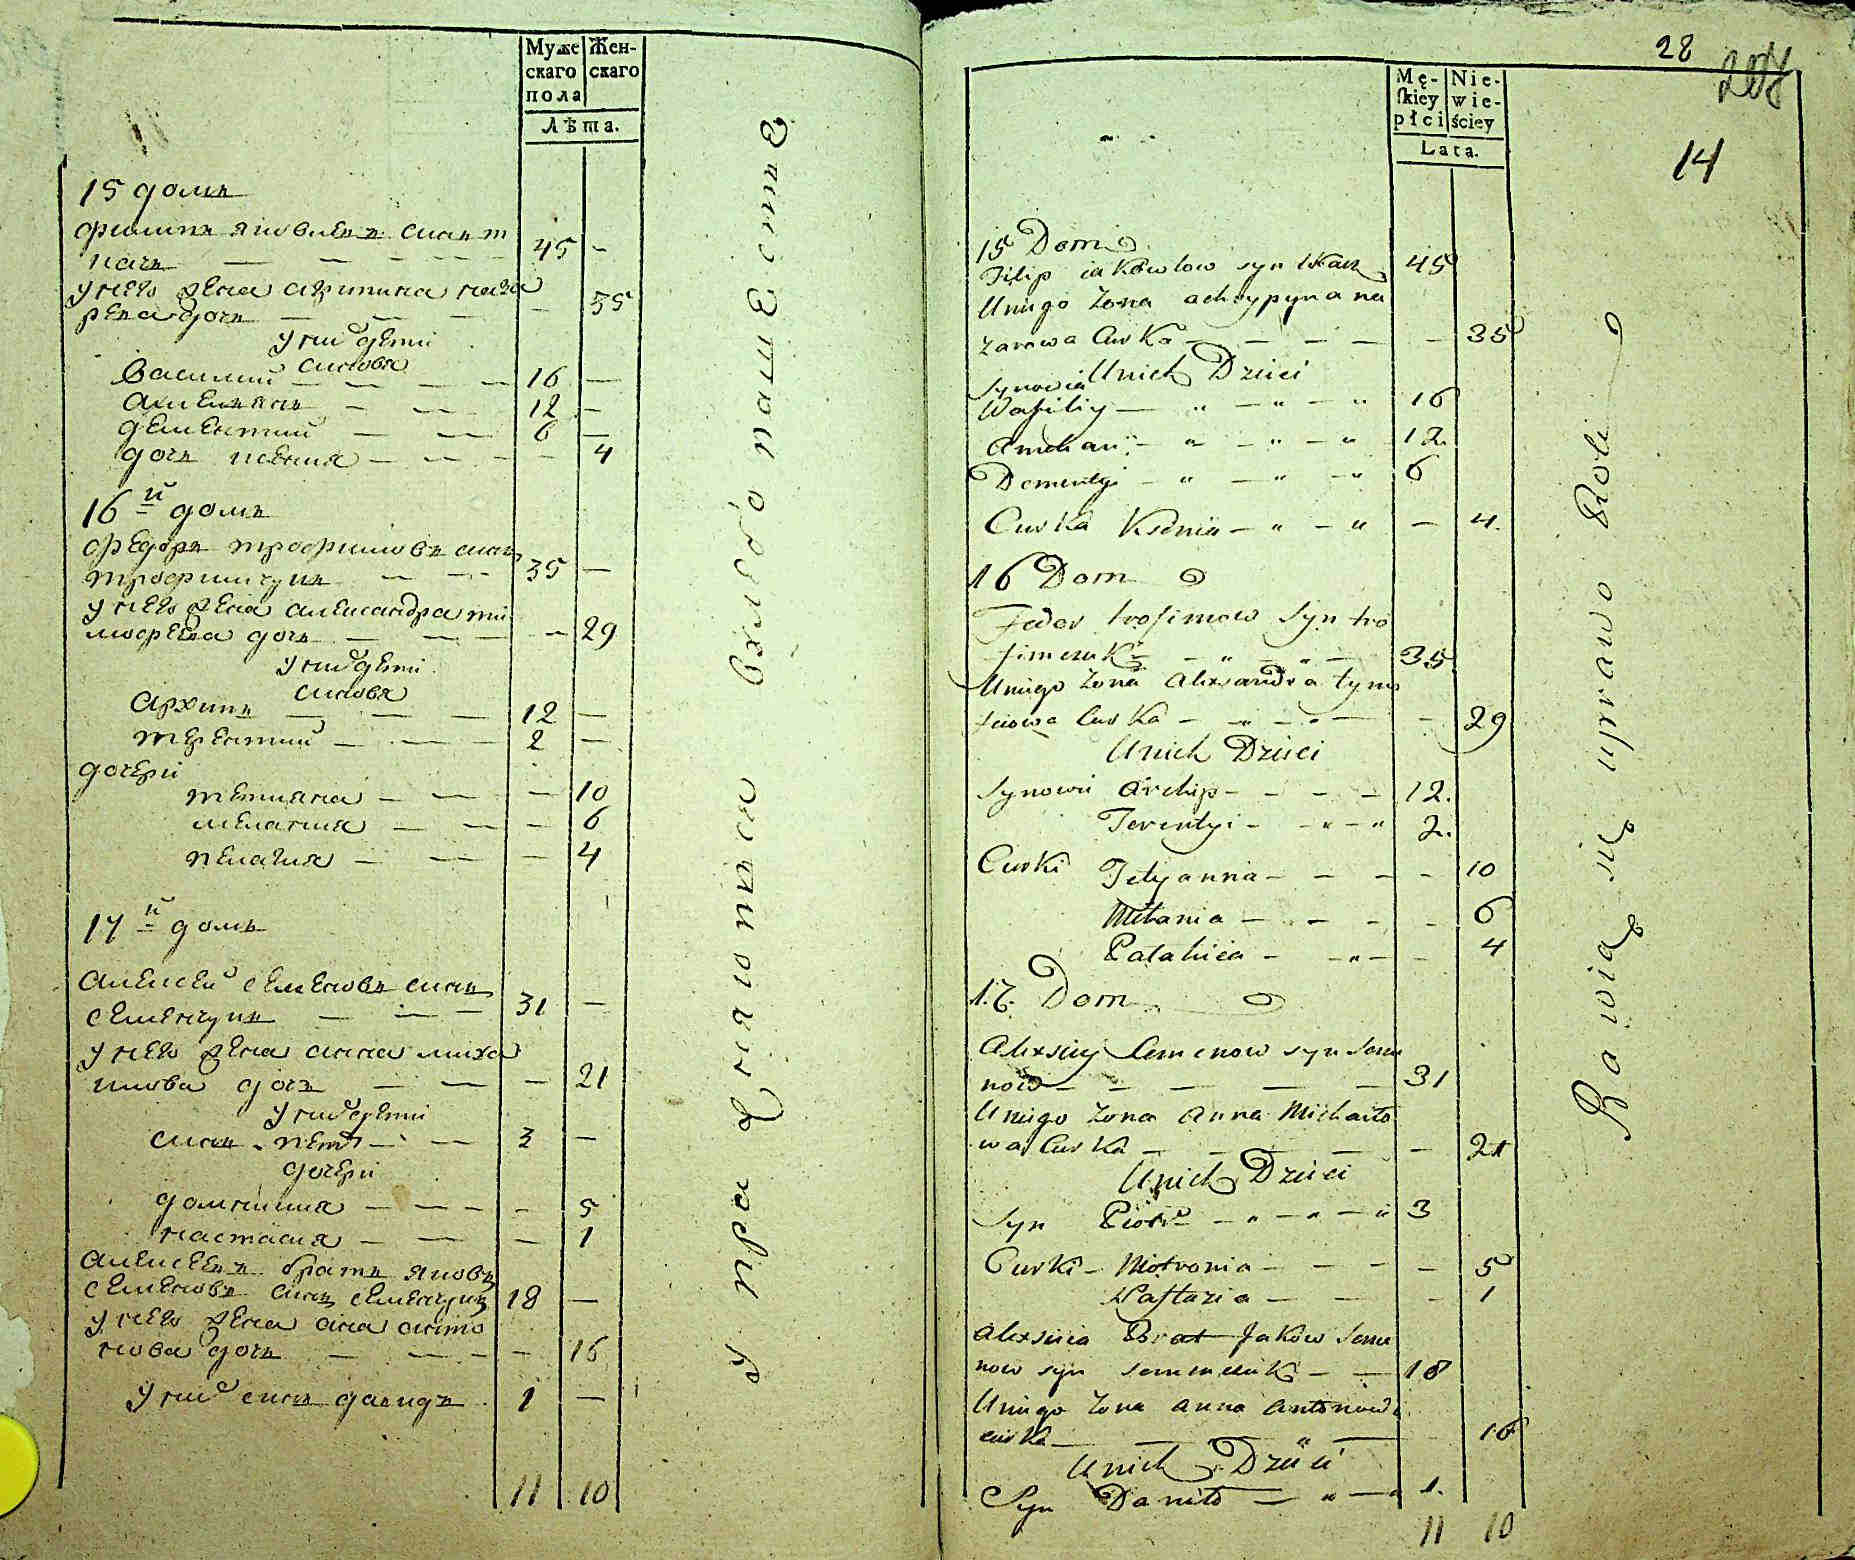 Муже Жен-
скаго скаго
пола
Лѣта.
15 домъ
филипъ яковлевъ синъ т
качъ — — — 45 —
у него жена агрипина наза
рева дочъ — — — — 35
у нихъ дети
синовя
Василий — — — — 16 —
Амельянъ — — — 12 —
дементий — — — 6 —
дочъ ксения — — — — 4
16й домъ
федоръ трофимовъ синъ
трофимчукъ — — — 35 —
у него жена александра ти
мофеева дочъ — — — — 29
у нихъ дети
синовя
Архипъ — — — 12 —
терентий — — — 2 —
дочери
тетияна — — — 10
мелания — — — 6
пелагия — — — 4
17й домъ
алексей семеновъ синъ
семенчукъ — — — 31 —
у него жена анна миха
илова дочъ — — — 21
у нихъ дети
синъ петръ — — 3 —
дочери
— — — — 5
настасия — — — 1
алексеевъ братъ яковъ
семеновъ синъ семенчукъ 18 —
у него жена анна анто
нова дочъ — — — — 16
у нихъ синъ данидъ 1 —
11 10
Упражняются Вхлебопашестве
28
208
14
Mę- Nie-
skiey wie-
płci ściey
Lata.
15 Dom
Filip iakowlow syn tkacz 45
Uniego Zona achrypyna na
zarowa Curka — — — — — 35
Unich Dzieci
Synowia
Wasiliy — " — " — " 16
Amelian — " — " — " 12.
Dementyi — " — " — " 6
Curka Ksenia — " — " — 4.
16 Dom
Fedor trofimow Syn tro
fimczuk — — " — " — 35
Uniego Zona Alexandra tymo
feiowa Curka — — " — " — — 29
Unich Dzieci
Synowie Archip — — — — 12.
Terentyi — — " — " 2.
Curki Tetyanna — — — — 10
Melania — — — — 6
Palahiea — — " — — 4
17. Dom
Alexsiey Semenow syn Seme
now — — — — — 31
Uniego Zona Anna Michaiło
wa Curka — — — — — 21
Unich Dzieci
Syn Piotr — " — " — " 3
Curki — Motronia — — — — 5
Nastazia — — — 1
Alexsieia Brat Jaków Seme
now syn semenczuk — — 18
Uniego Zona Anna Antonowa
curka — — " — — 16
Unich Dzieci
Syn Daniło — " — " 1.
11 10
Bawią się uprawo Roli